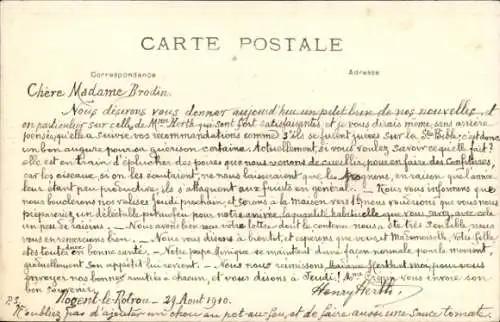 CARTE POSTALE
Correspondance
Adresse
Chère Madame Brodin.
Nous désirons vous donner aujourd'hui un petit brin de nos nouvelles, et
en particulier sur celles de Mme Herth qui sont fort satisfaisantes, et je vous dirais même, sans arrière
pensée, qu'elle a suivre vos recommandations comme s'ils se juraient sur la Ste Bible, c'est donc
un bon augure pour sa guérison certaine. Actuellement, si vous voulez savoir ce qu'elle fait?
elle est en train d'éplucher des poires que nous venons de cueillir pour en faire des confitures,
car les oiseaux, si on les écoutaient, ne nous laisseraient que les trognons, en raison que l'année
leur étant peu productive, ils s'attaquent aux fruits en général. _ Nous vous informons que
nous bouclerons nos valises jeudi prochain, et serons à la maison vers
prépareriez un délectable pot au feu pour notre arrivée, laquelle habituelle que vous savez avec cela
un peu de raisins. _ Nous avons bien reçu votre lettre dont le contenu nous a été très sensible, nous
vous en remercions bien. _ Nous vous disons à bientôt, et espérons que vous et Mademoiselle votre fille
êtes toutes en bonne santé. _ Notre pépé se maintient d'une façon normale, pour le moment,
graduellement son appétit lui revient. _ Nous nous réunissons Madame Herth et moi, pour vous
envoyer nos bonnes amitiés à chacun, et vous disons à Jeudi! Mme vous envoie son
bon souvenir.
Nogent-le-Rotrou _ 29 Août 1910.
Henry Herth
P.S. N'oubliez pas d'ajouter un chou au pot-au-feu, et de faire aussi une sauce tomate.